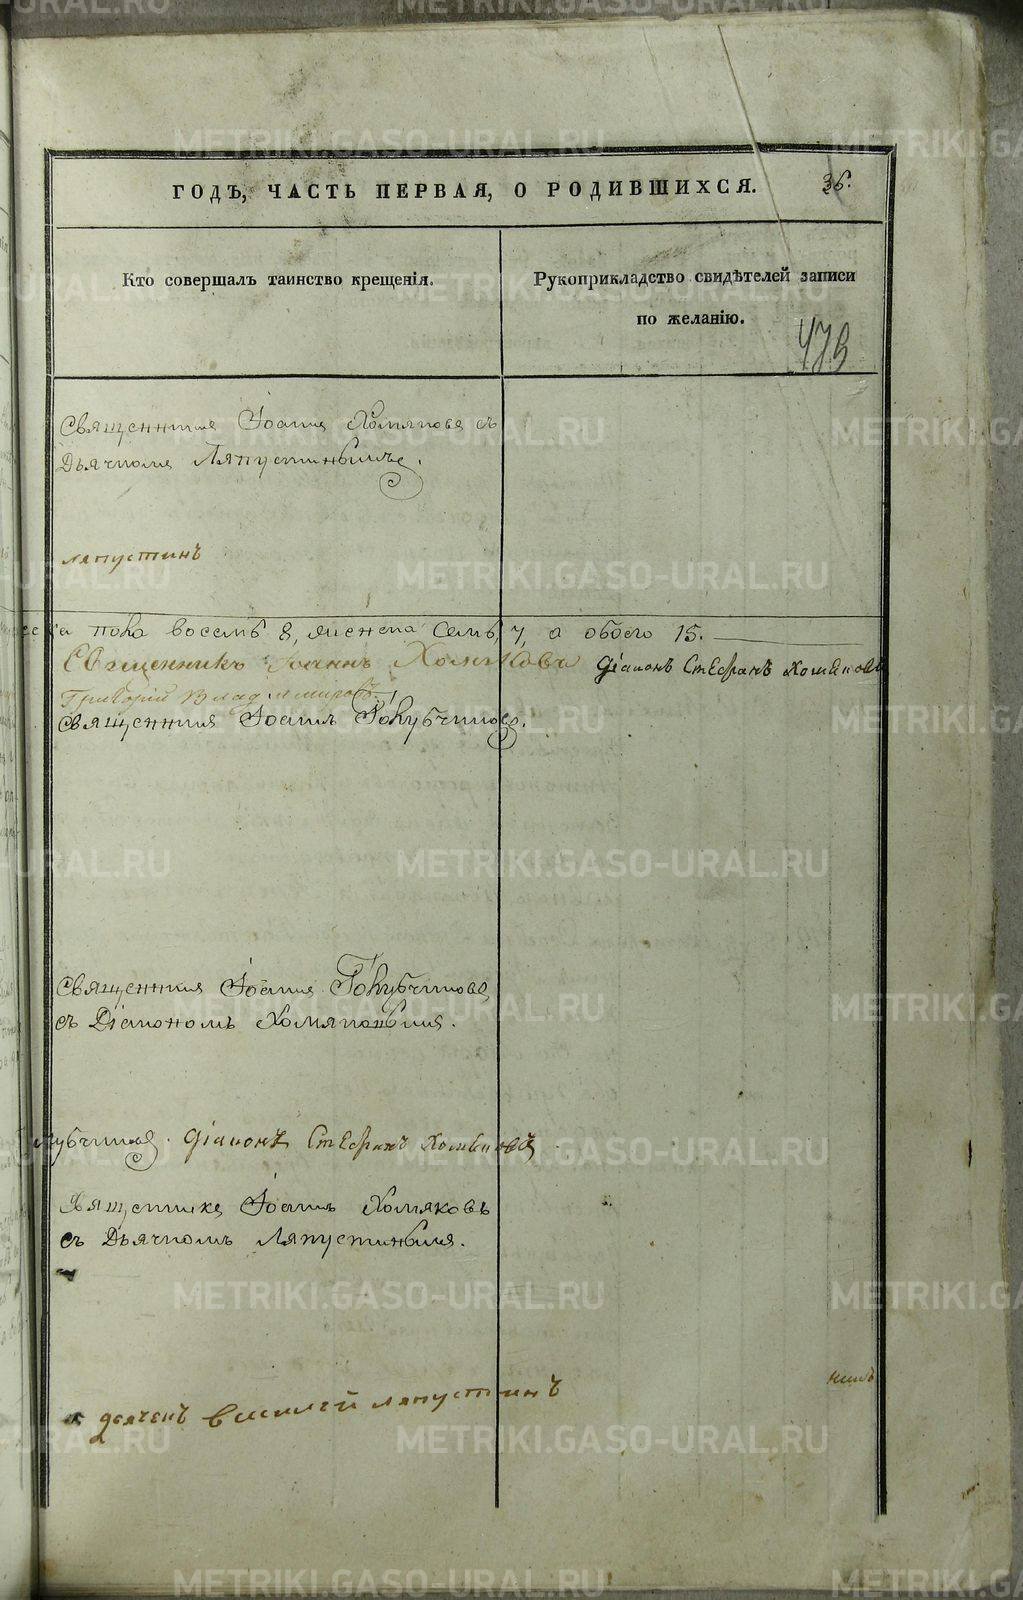 ГОДЪ, ЧАСТЬ ПЕРВАЯ, О РОДИВШИХСЯ. 36.
Кто совершалъ таинство крещенія.
Рукоприкладство свидѣтелей записи
по желанію.
479
Священникъ Іоаннъ Хомяковъ съ
Дьячкомъ Ляпустинымъ.
ляпустинъ
пола восемь 8, женска семь, 7, а обоего 15.
Священникъ Іоаннъ Хомяковъ діаконъ Стефанъ Хомяковъ
Григорій Владимиров
Священникъ Іоаннъ Голубчиковъ.
Священникъ Іоаннъ Голубчиковъ
съ Діакономъ Хомяковымъ.
лубчиковъ. діаконъ Стефанъ Хомяковъ
Священникъ Іоаннъ Хомяковъ
съ Дьячкомъ Ляпустинымъ.
дьячекъ василей ляпустинъ
METRIKI.GASO-URAL.RU